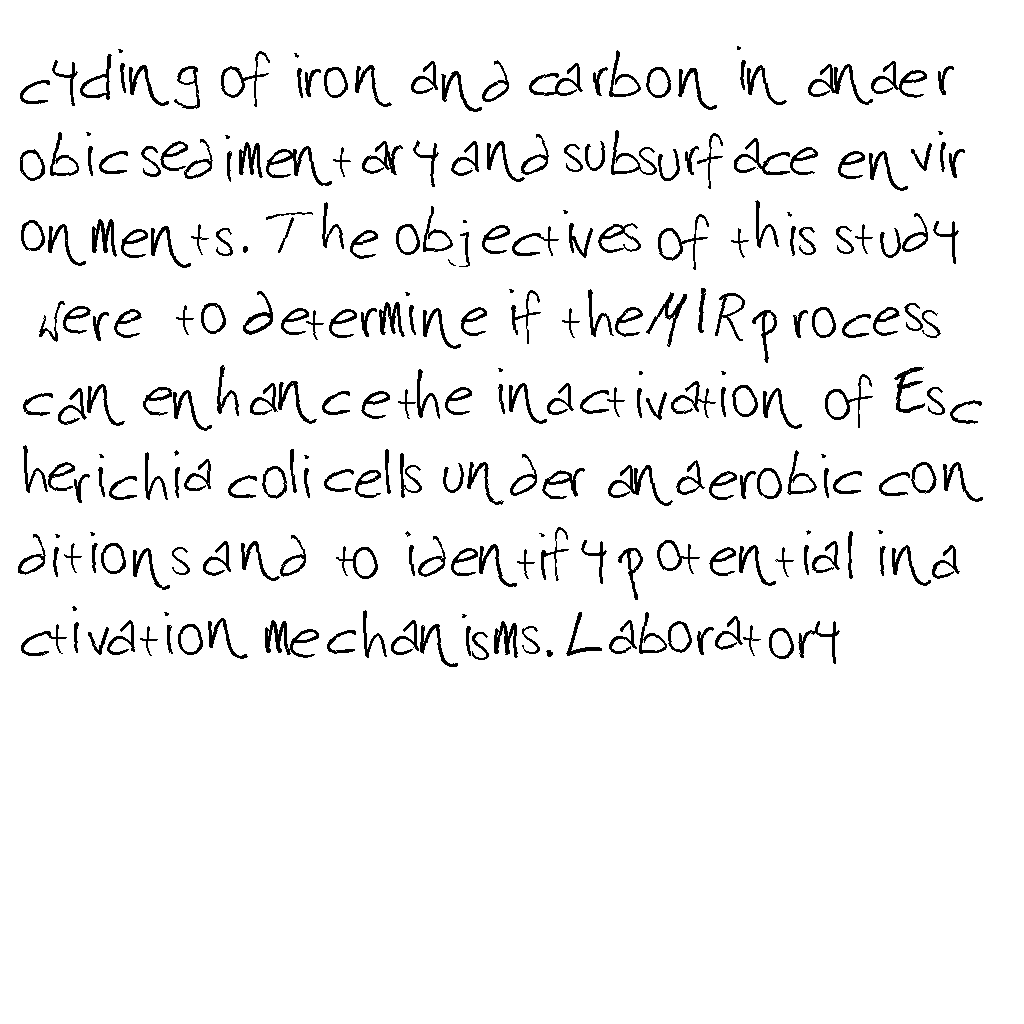 cyding of iron and carbon in anaer
obic sedimentary and subsurface envir
onments. The objectives of this study
were to determine if the MIR process
can enhance the inactivation of Esc
herichia coli cells under anaerobic con
ditions and to identify potential ina
ctivation mechanisms. Laboratory